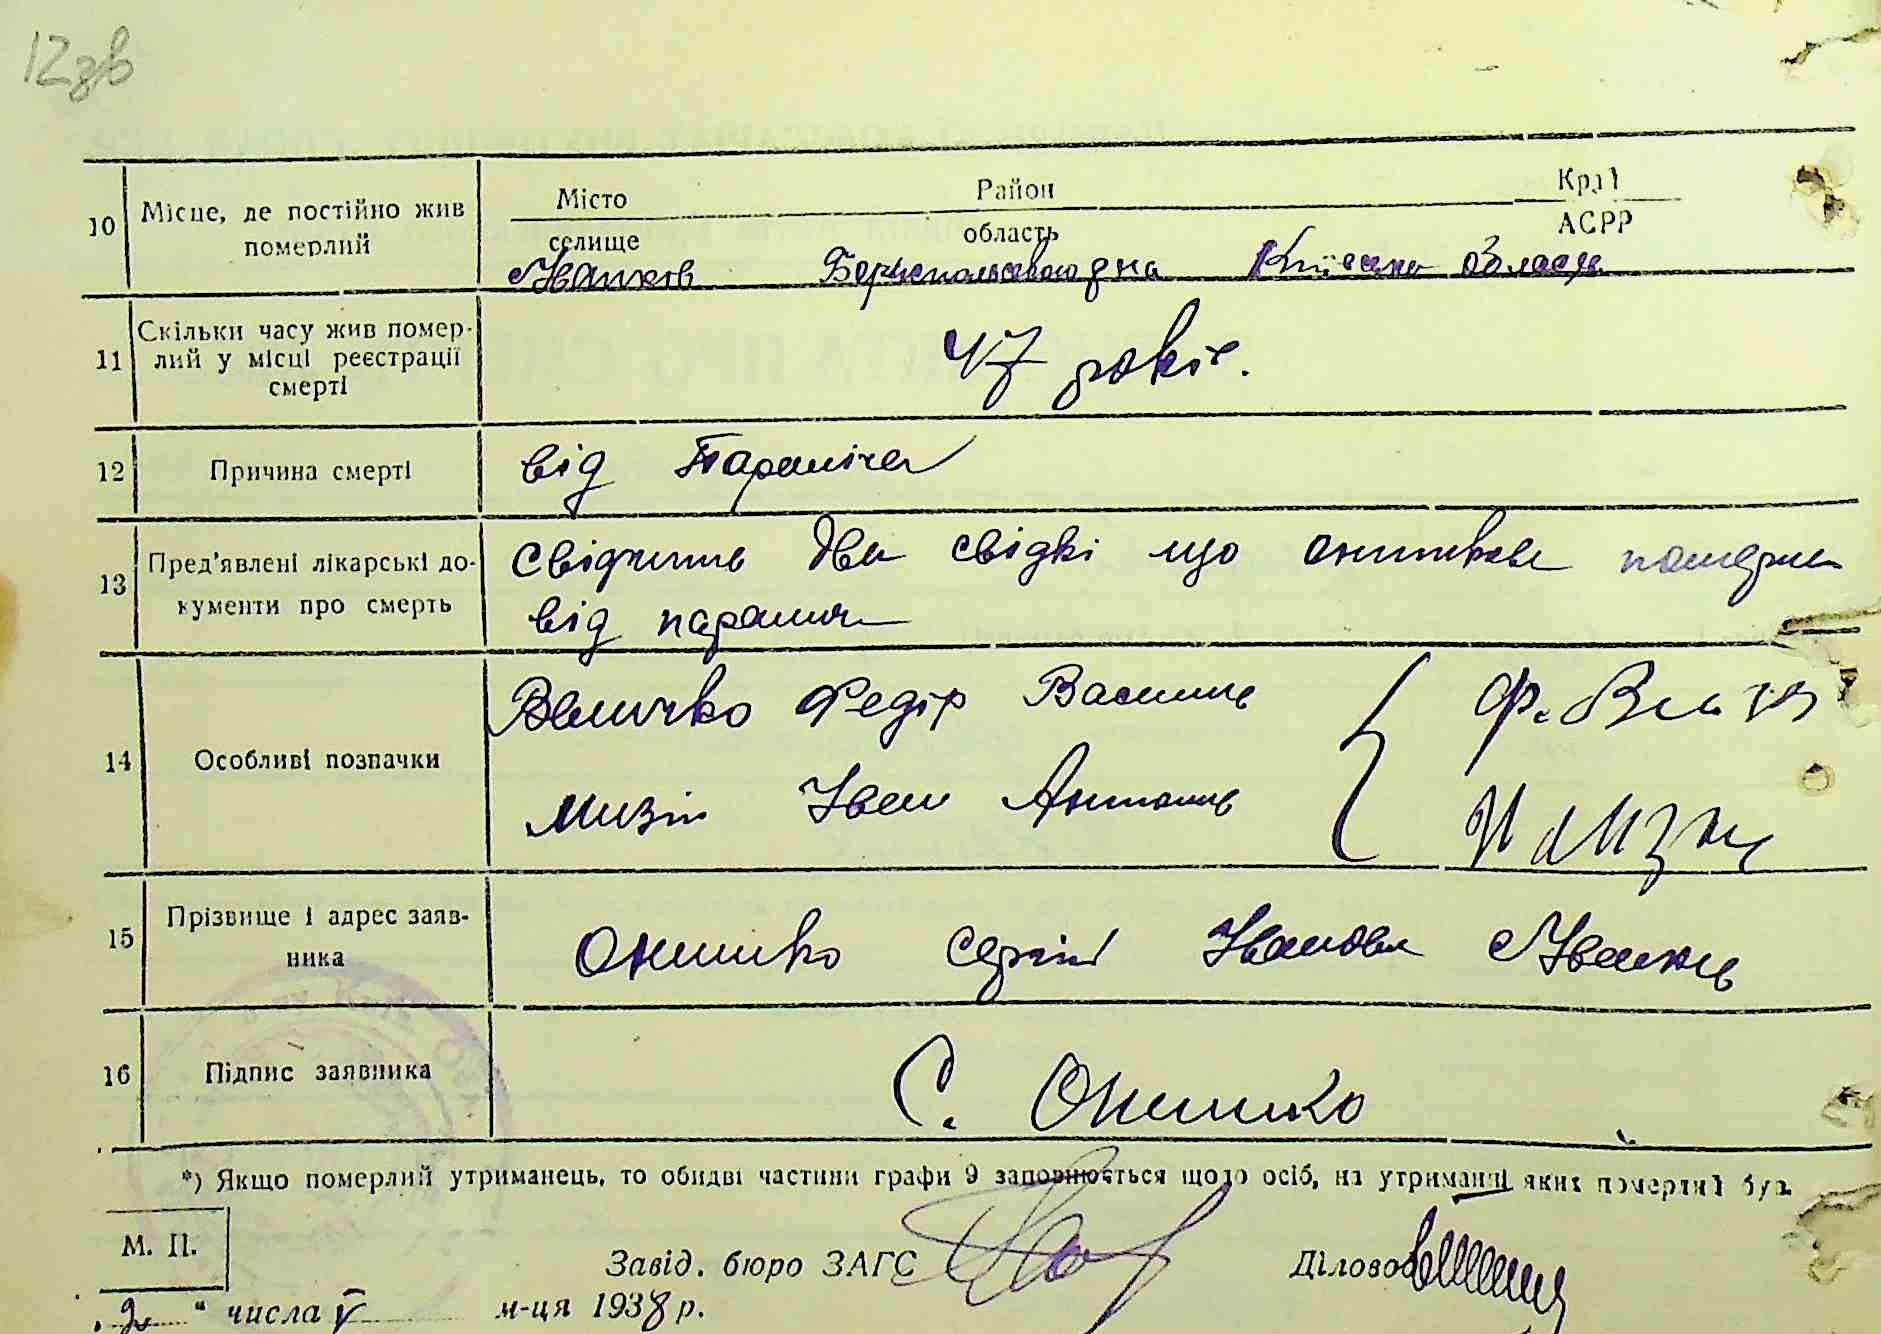 12зв
10 Місце, де постійно жив померлий Місто Район Край
селище область АСРР
Іванків Бориспольського р-на Київська область
11 Скільки часу жив помер-
лий у місці реєстрації
смерті
47 років.
12 Причина смерті від Параліча
13 Пред'явлені лікарські до-
кументи про смерть
Свідчить два свідкі що померла
від параліч
14 Особливі позначки
Величко Федір Василів Ф. Вел
Мизін Іван Антонів
15 Прізвище і адрес заяв-
ника
Онишко Сергій Іванів Іванків
16 Підпис заявника С. Онишко
*) Якщо померлий утриманець, то обидві частини графи 9 заповнюється щодо осіб, на утриманні яких померлий був.
М. П.
Завід. бюро ЗАГС Діловод
" числа V м-ця 1938 р.